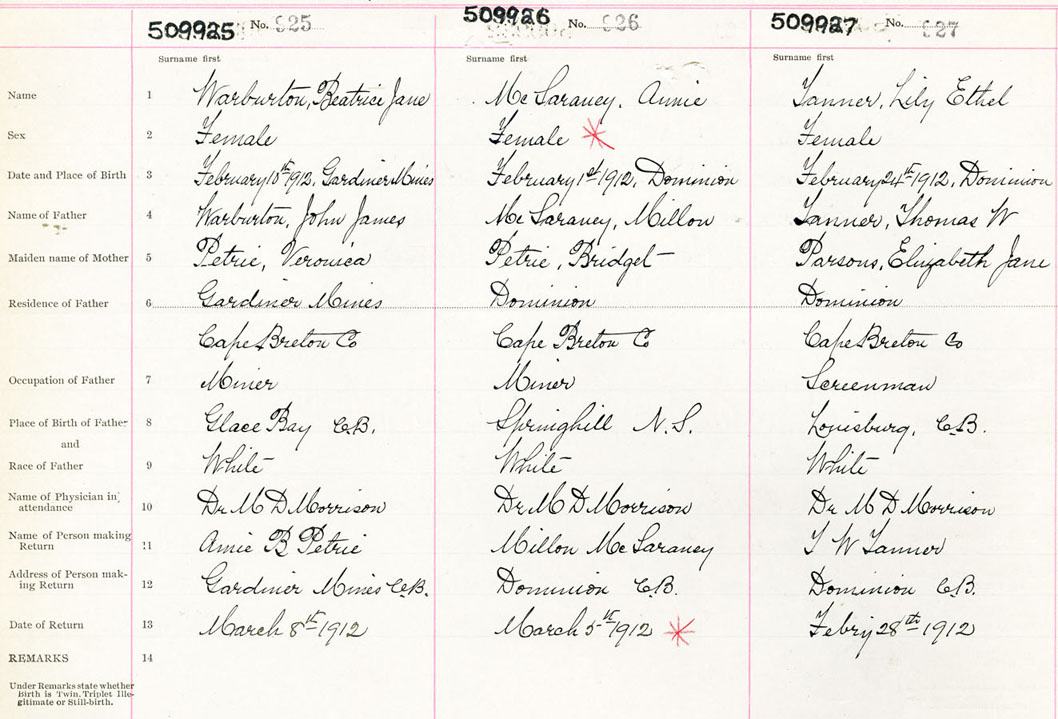 509925 No. 925 509926 No. 926 509927 No. 927
Surname first Surname first Surname first
Name 1 Warburton, Beatrice Jane Mc Saraney, Annie Tanner, Lily Ethel
Sex 2 Female Female Female
Date and Place of Birth 3 February 10th 1912, Gardiner Mines February 1st 1912, Dominion February 24th 1912, Dominion
Name of Father 4 Warburton, John James Mc Saraney, Millon Tanner, Thomas W
Maiden name of Mother 5 Petrie, Veronica Petrie, Bridget Parsons, Elizabeth Jane
Residence of Father 6 Gardiner Mines Dominion Dominion
Cape Breton Co Cape Breton Co Cape Breton Co
Occupation of Father 7 Miner Miner Screenman
Place of Birth of Father 8 Glace Bay C.B. Springhill N.S. Louisburg, C.B.
and
Race of Father 9 White White White
Name of Physician in attendance 10 Dr M D Morrison Dr M D Morrison Dr M D Morrison
Name of Person making Return 11 Annie B Petrie Millon Mc Saraney T W Tanner
Address of Person mak-
ing Return 12 Gardiner Mines C.B. Dominion C.B. Dominion C.B.
Date of Return 13 March 8th 1912 March 5th 1912 Febry 28th 1912
REMARKS 14
Under Remarks state whether
Birth is Twin, Triplet Ille-
gitimate or Still-birth.